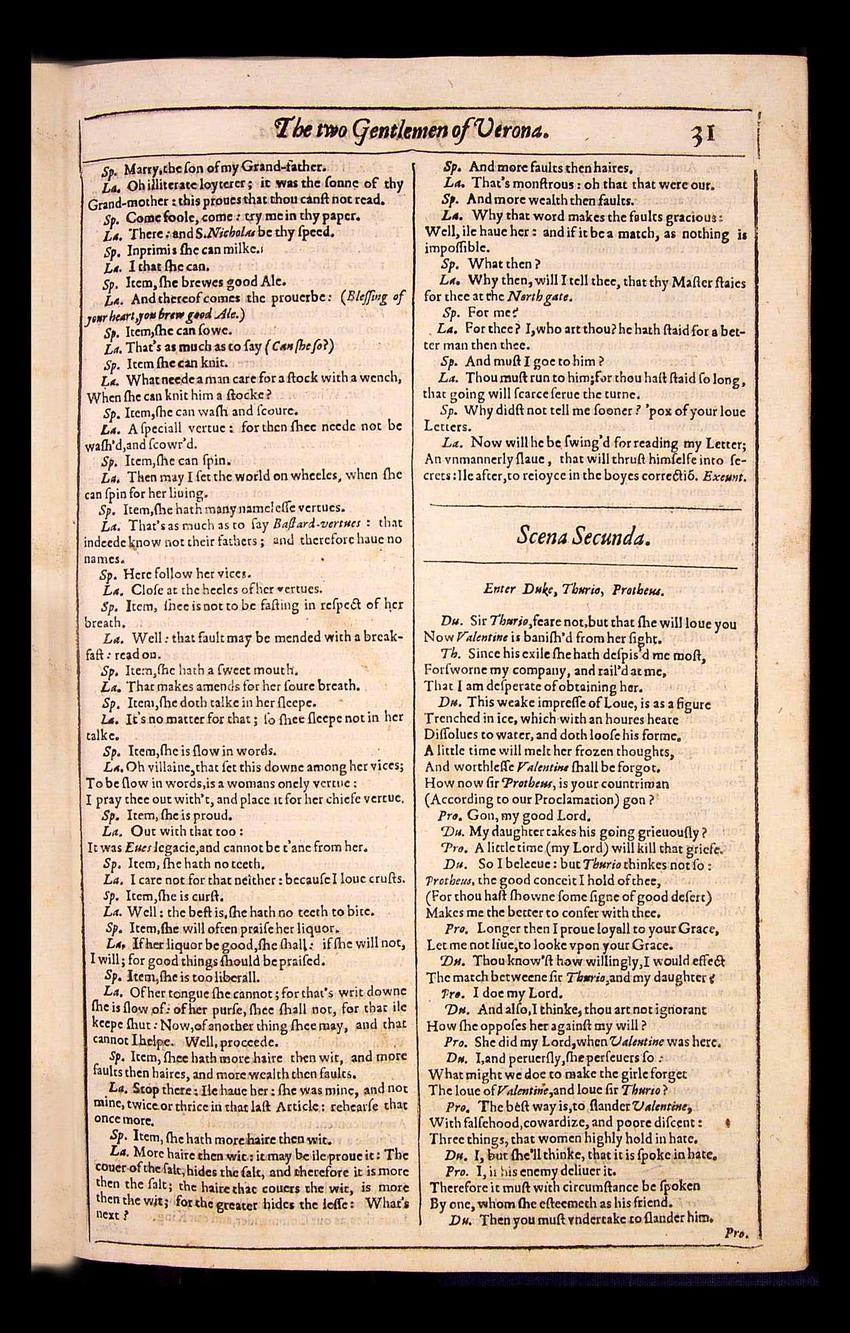 The two Gentlemen of Verona. 31
Sp. Marry, the ſon of my Grand-father.
La. Oh illiterate loyterer; it was the ſonne of thy
Grand-mother : this proues that thou canſt not read.
Sp. Come foole, come : try me in thy paper.
La. There : and S. Nicholas be thy ſpeed.
Sp. Inprimis ſhe can milke.
La. I that ſhe can.
Sp. Item, ſhe brewes good Ale.
La. And thereof comes the prouerbe: (Bleſſing of
your heart, you brew good Ale.)
Sp. Item, ſhe can ſowe.
La. That's as much as to ſay (Can ſhe ſo?)
Sp. Item ſhe can knit.
La. What neede a man care for a ſtock with a wench,
When ſhe can knit him a ſtocke?
Sp. Item, ſhe can waſh and ſcoure.
La. A ſpeciall vertue : for then ſhee neede not be
waſh'd, and ſcowr'd.
Sp. Item, ſhe can ſpin.
La. Then may I ſet the world on wheeles, when ſhe
can ſpin for her liuing.
Sp. Item, ſhe hath many nameleſſe vertues.
La. That's as much as to ſay Baſtard-vertues : that
indeede know not their fathers; and therefore haue no
names.
Sp. Here follow her vices.
La. Cloſe at the heeles of her vertues.
Sp. Item, ſhee is not to be faſting in reſpect of her
breath.
La. Well : that fault may be mended with a break-
faſt : read on.
Sp. Item, ſhe hath a ſweet mouth.
La. That makes amends for her ſoure breath.
Sp. Item, ſhe doth talke in her ſleepe.
La. It's no matter for that; ſo ſhee ſleepe not in her
talke.
Sp. Item, ſhe is ſlow in words.
La. Oh villaine, that ſet this downe among her vices;
To be ſlow in words, is a womans onely vertue :
I pray thee out with't, and place it for her chiefe vertue.
Sp. Item, ſhe is proud.
La. Out with that too :
It was Eues legacie, and cannot be t'ane from her.
Sp. Item, ſhe hath no teeth.
La. I care not for that neither : becauſe I loue cruſts.
Sp. Item, ſhe is curſt.
La. Well : the beſt is, ſhe hath no teeth to bite.
Sp. Item, ſhe will often praiſe her liquor.
La. If her liquor be good, ſhe ſhall : if ſhe will not,
I will; for good things ſhould be praiſed.
Sp. Item, ſhe is too liberall.
La. Of her tongue ſhe cannot; for that's writ downe
ſhe is ſlow of: of her purſe, ſhee ſhall not, for that ile
keepe ſhut : Now, of another thing ſhee may, and that
cannot I helpe. Well, proceede.
Sp. Item, ſhee hath more haire then wit, and more
faults then haires, and more wealth then faults.
La. Stop there : Ile haue her : ſhe was mine, and not
mine, twice or thrice in that laſt Article: rehearſe that
once more.
Sp. Item, ſhe hath more haire then wit.
La. More haire then wit: it may be ile proue it : The
couer of the ſalt, hides the ſalt, and therefore it is more
then the ſalt; the haire that couers the wit, is more
then the wit; for the greater hides the leſſe: What's
next ?
Sp. And more faults then haires.
La. That's monſtrous : oh that that were out.
Sp. And more wealth then faults.
La. Why that word makes the faults gracious:
Well, ile haue her : and if it be a match, as nothing is
impoſſible.
Sp. What then ?
La. Why then, will I tell thee, that thy Maſter ſtaies
for thee at the North gate.
Sp. For me?
La. For thee ? I, who art thou? he hath ſtaid for a bet-
ter man then thee.
Sp. And muſt I goe to him ?
La. Thou muſt run to him; for thou haſt ſtaid ſo long,
that going will ſcarce ſerue the turne.
Sp. Why didſt not tell me ſooner ? 'pox of your loue
Letters.
La. Now will he be ſwing'd for reading my Letter;
An vnmannerly ſlaue, that will thruſt himſelfe into ſe-
crets : Ile after, to reioyce in the boyes correctiō. Exeunt.
Scena Secunda.
Enter Duke, Thurio, Protheus.
Du. Sir Thurio, feare not, but that ſhe will loue you
Now Valentine is baniſh'd from her ſight.
Th. Since his exile ſhe hath deſpis'd me moſt,
Forſworne my company, and rail'd at me,
That I am deſperate of obtaining her.
Du. This weake impreſſe of Loue, is as a figure
Trenched in ice, which with an houres heate
Diſſolues to water, and doth looſe his forme.
A little time will melt her frozen thoughts,
And worthleſſe Valentine ſhall be forgot.
How now ſir Protheus, is your countriman
(According to our Proclamation) gon ?
Pro. Gon, my good Lord.
Du. My daughter takes his going grieuouſly ?
Pro. A little time (my Lord) will kill that griefe.
Du. So I beleeue : but Thurio thinkes not ſo :
Protheus, the good conceit I hold of thee,
(For thou haſt ſhowne ſome ſigne of good deſert)
Makes me the better to confer with thee.
Pro. Longer then I proue loyall to your Grace,
Let me not liue, to looke vpon your Grace.
Du. Thou know'ſt how willingly, I would effect
The match betweene ſir Thurio, and my daughter ?
Pro. I doe my Lord.
Du. And alſo, I thinke, thou art not ignorant
How ſhe oppoſes her againſt my will ?
Pro. She did my Lord, when Valentine was here.
Du. I, and peruerſly, ſhe perſeuers ſo :
What might we doe to make the girle forget
The loue of Valentine, and loue ſir Thurio ?
Pro. The beſt way is, to ſlander Valentine,
With falſehood, cowardize, and poore diſcent :
Three things, that women highly hold in hate.
Du. I, but ſhe'll thinke, that it is ſpoke in hate.
Pro. I, if his enemy deliuer it.
Therefore it muſt with circumſtance be ſpoken
By one, whom ſhe eſteemeth as his friend.
Du. Then you muſt vndertake to ſlander him.
Pro.